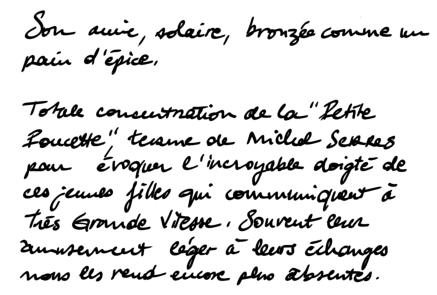 Son amie, solaire, bronzée comme un
pain d'épice.
Totale concentration de la "Petite
Poucette", terme de Michel Serres
pour évoquer l'incroyable doigté de
ces jeunes filles qui communiquent à
Très Grande Vitesse. Souvent leur
amusement léger à leurs échanges
nous les rend encore plus absentes.